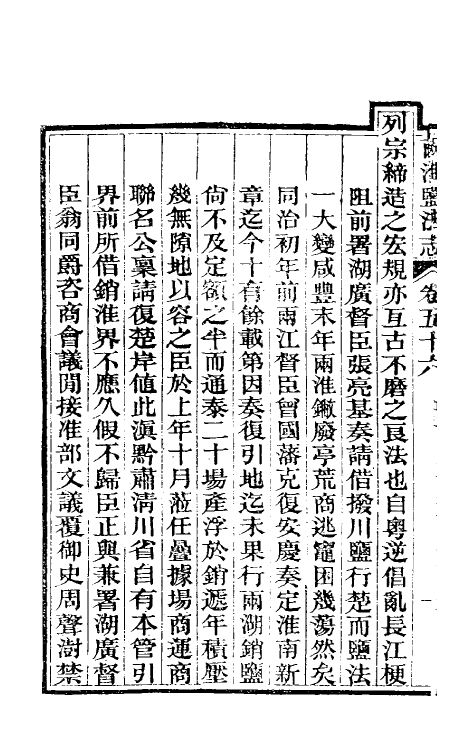 兩淮鹽法志 卷五十六
列宗締造之宏規亦互古不磨之良法也自粵逆倡亂長江梗
阻前署湖廣督臣張亮基奏請借撥川鹽行楚而鹽法
一大變咸豐末年兩淮鏾廢亭荒商逃竈困幾蕩然矣
同治初年前兩江督臣曾國藩克復安慶奏定淮南新
章迄今十有餘載第因奏復引地迄未果行兩湖銷鹽
尙不及定額之半而通泰二十場產浮於銷遞年積壓
幾無隙地以容之臣於上年十月蒞任疊據場商運商
聯名公稟請復楚岸値此滇黔肅淸川省自有本管引
界前所借銷淮界不應久假不歸臣正與兼署湖廣督
臣翁同爵咨商會議閒接准部文議覆御史周聲澍禁